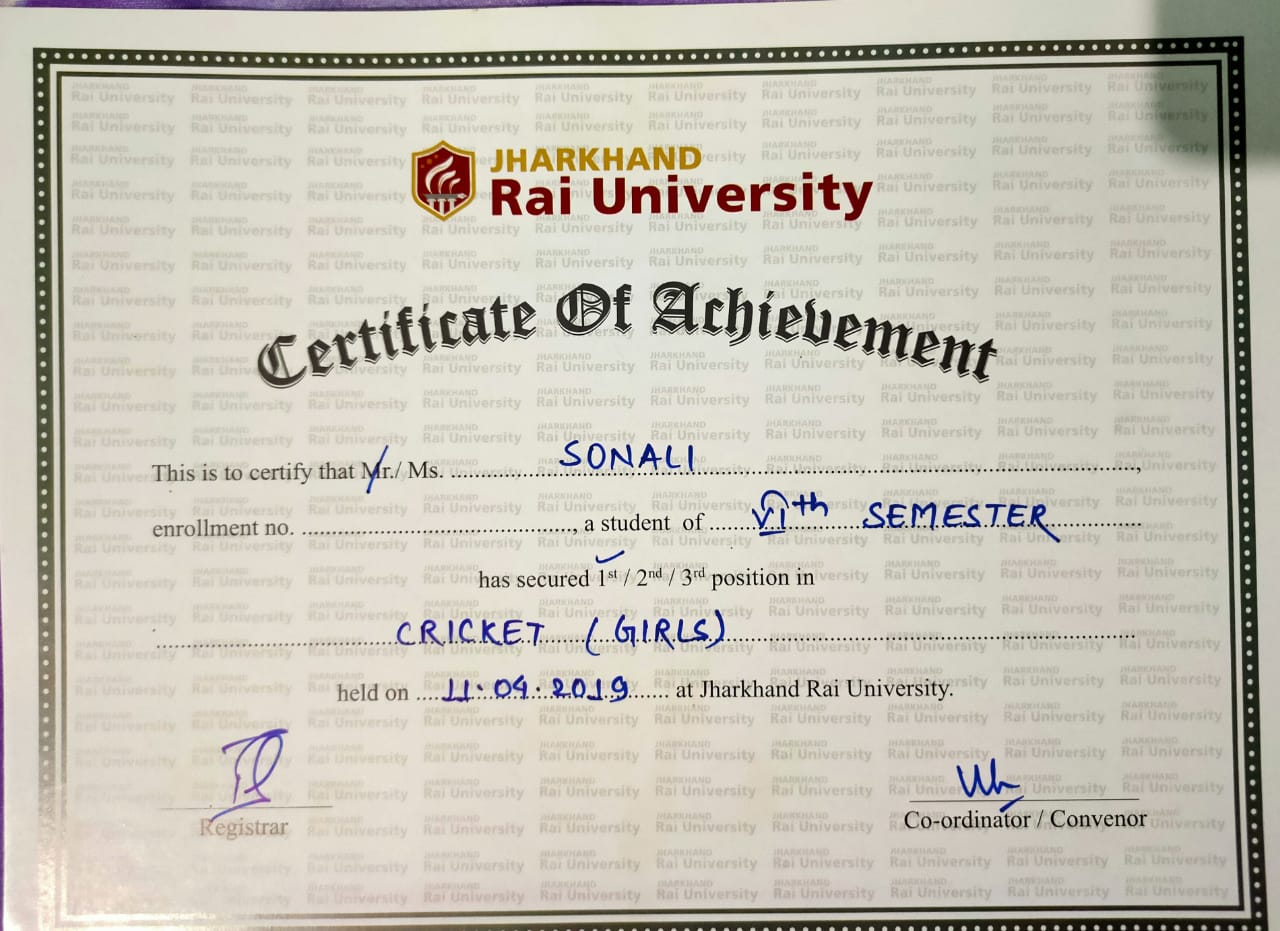 JHARKHAND
Rai University
Certificate Of Achievement
This is to certify that Mr./ Ms. ........ SONALI ........,
enrollment no. ........, a student of ........ VIth SEMESTER ........
has secured 1st / 2nd / 3rd position in
........ CRICKET (GIRLS) ........
held on ........ 11.04.2019 ........ at Jharkhand Rai University.
Registrar
Co-ordinator / Convenor